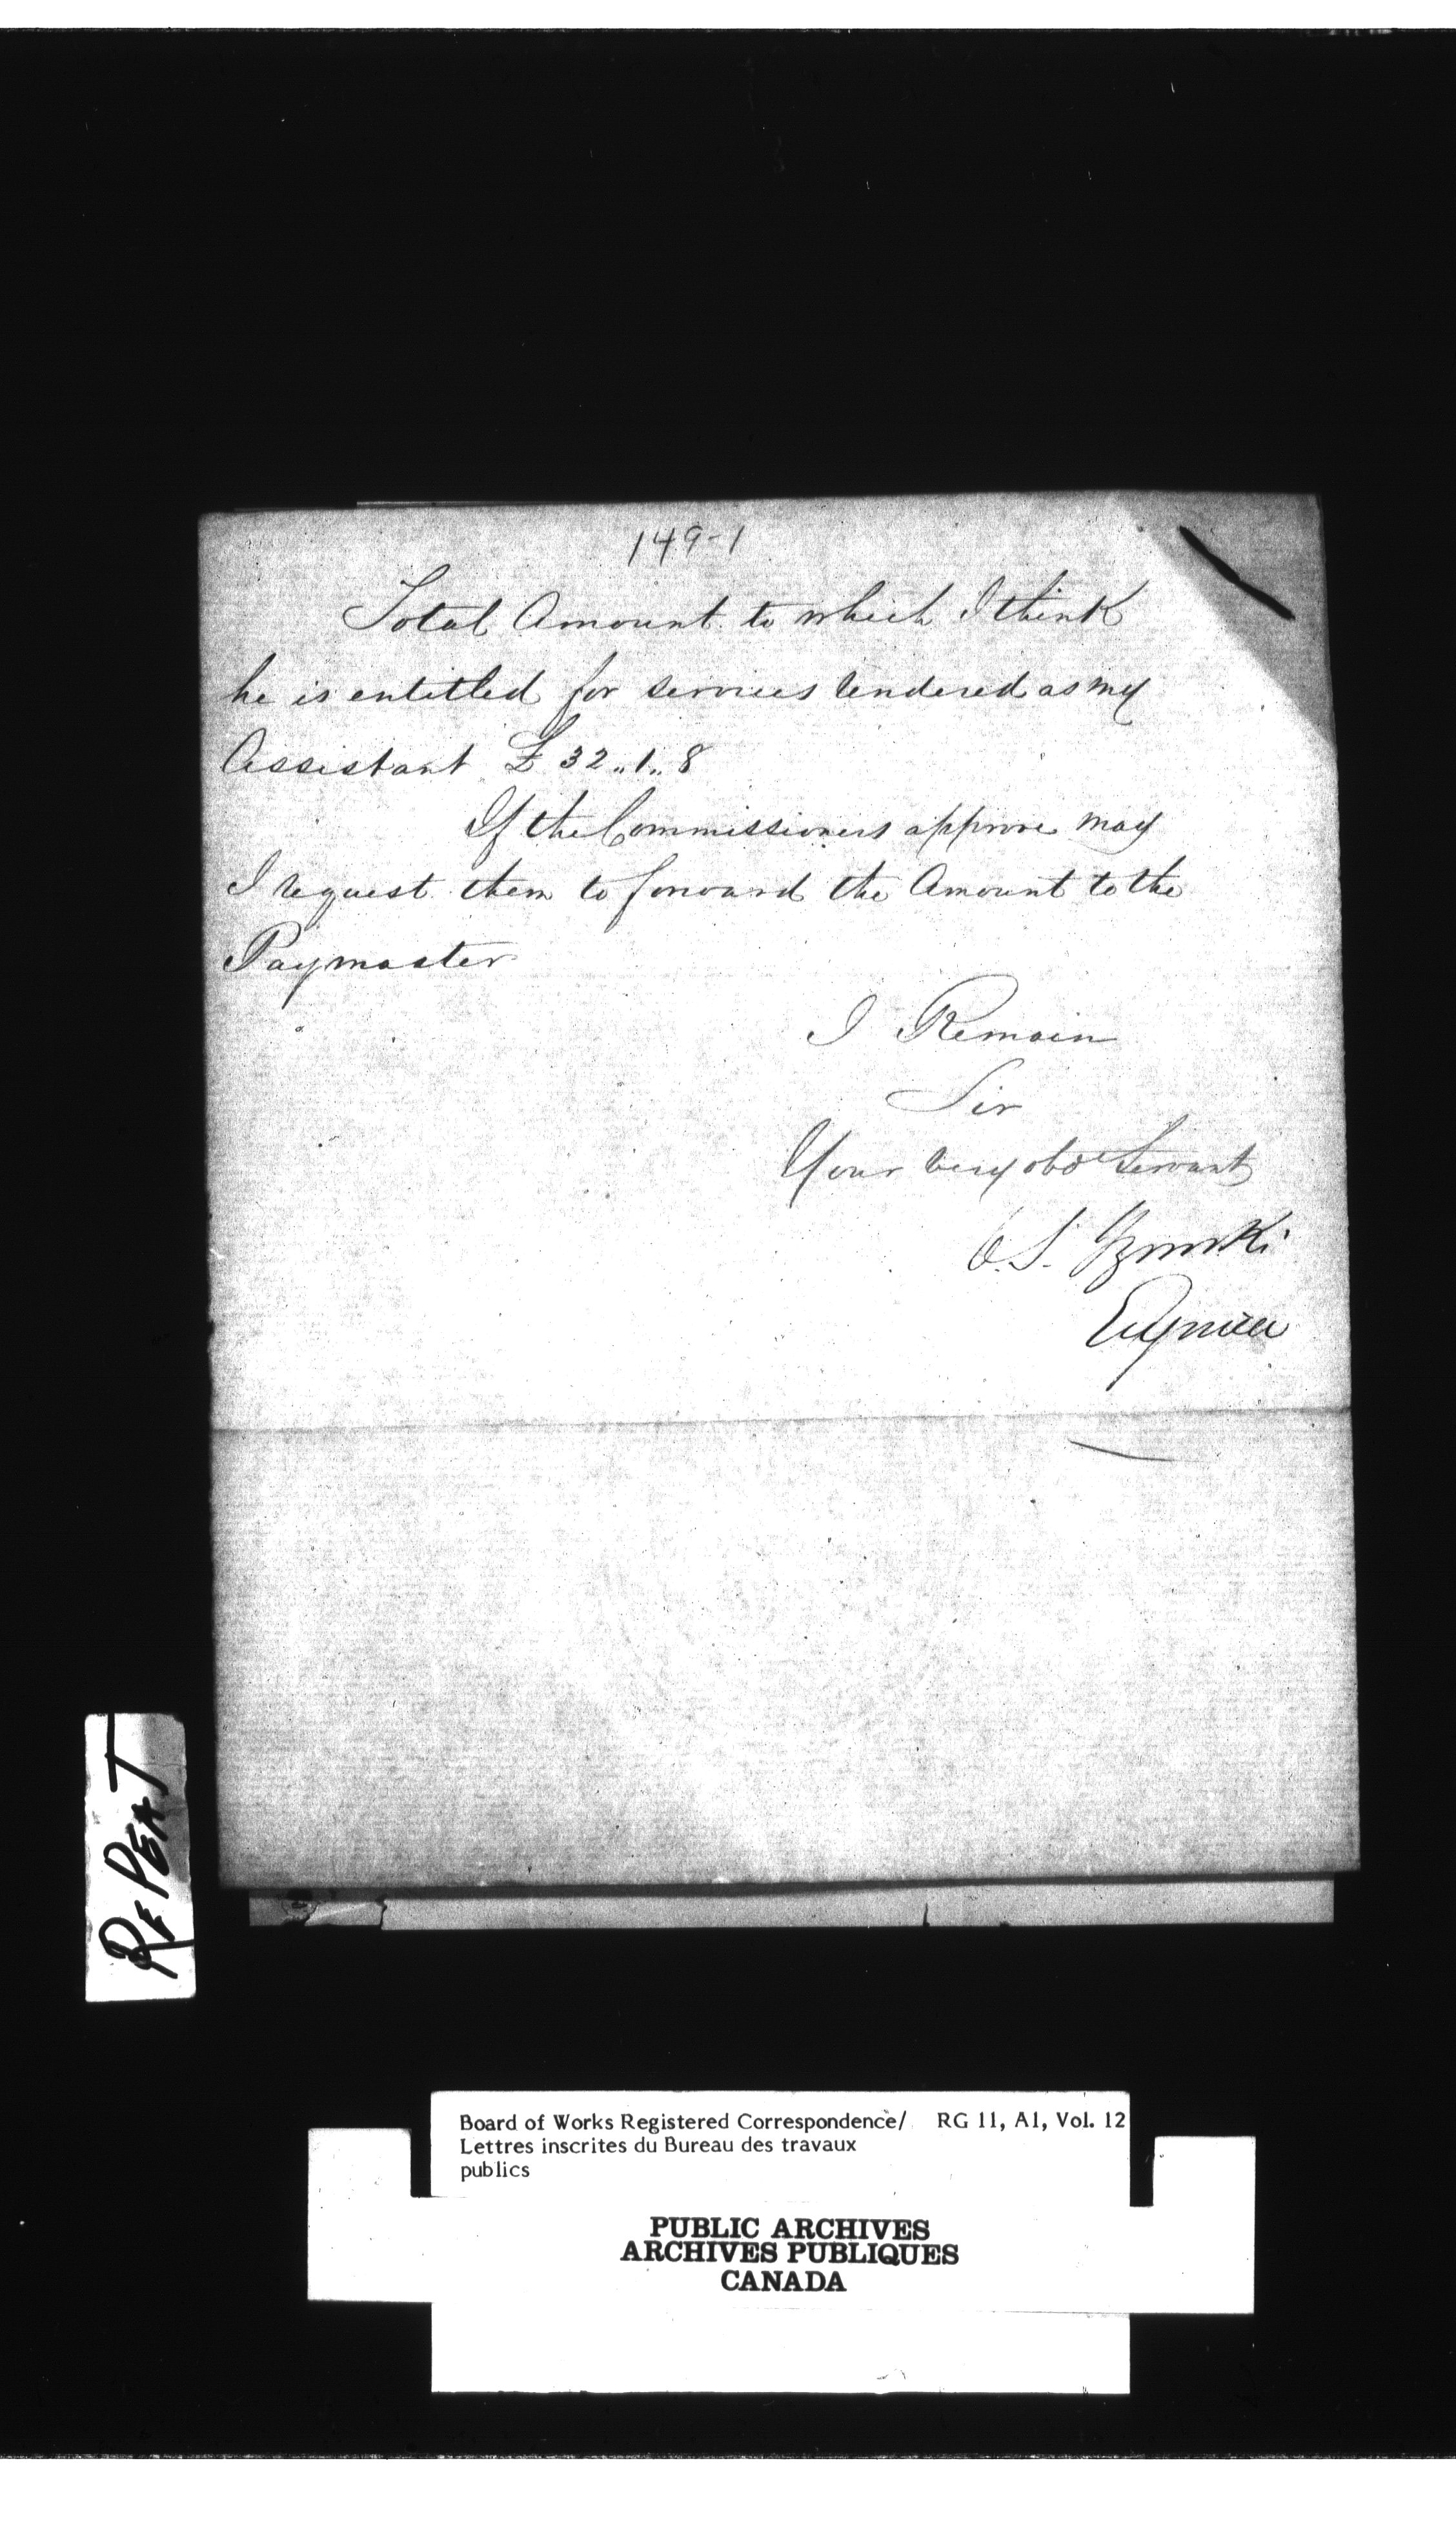 149-1
Total Amount to which I think
he is entitled for services rendered as my
Assistant £ 32,,1,,8
If the Commissioners approve may
I request them to forward the Amount to the
Paymaster
I Remain
Sir
Your very obdt Servant
C.S. Gzowski
Engineer
REPEAT
Board of Works Registered Correspondence/ RG 11, A1, Vol. 12
Lettres inscrites du Bureau des travaux
publics
PUBLIC ARCHIVES
ARCHIVES PUBLIQUES
CANADA